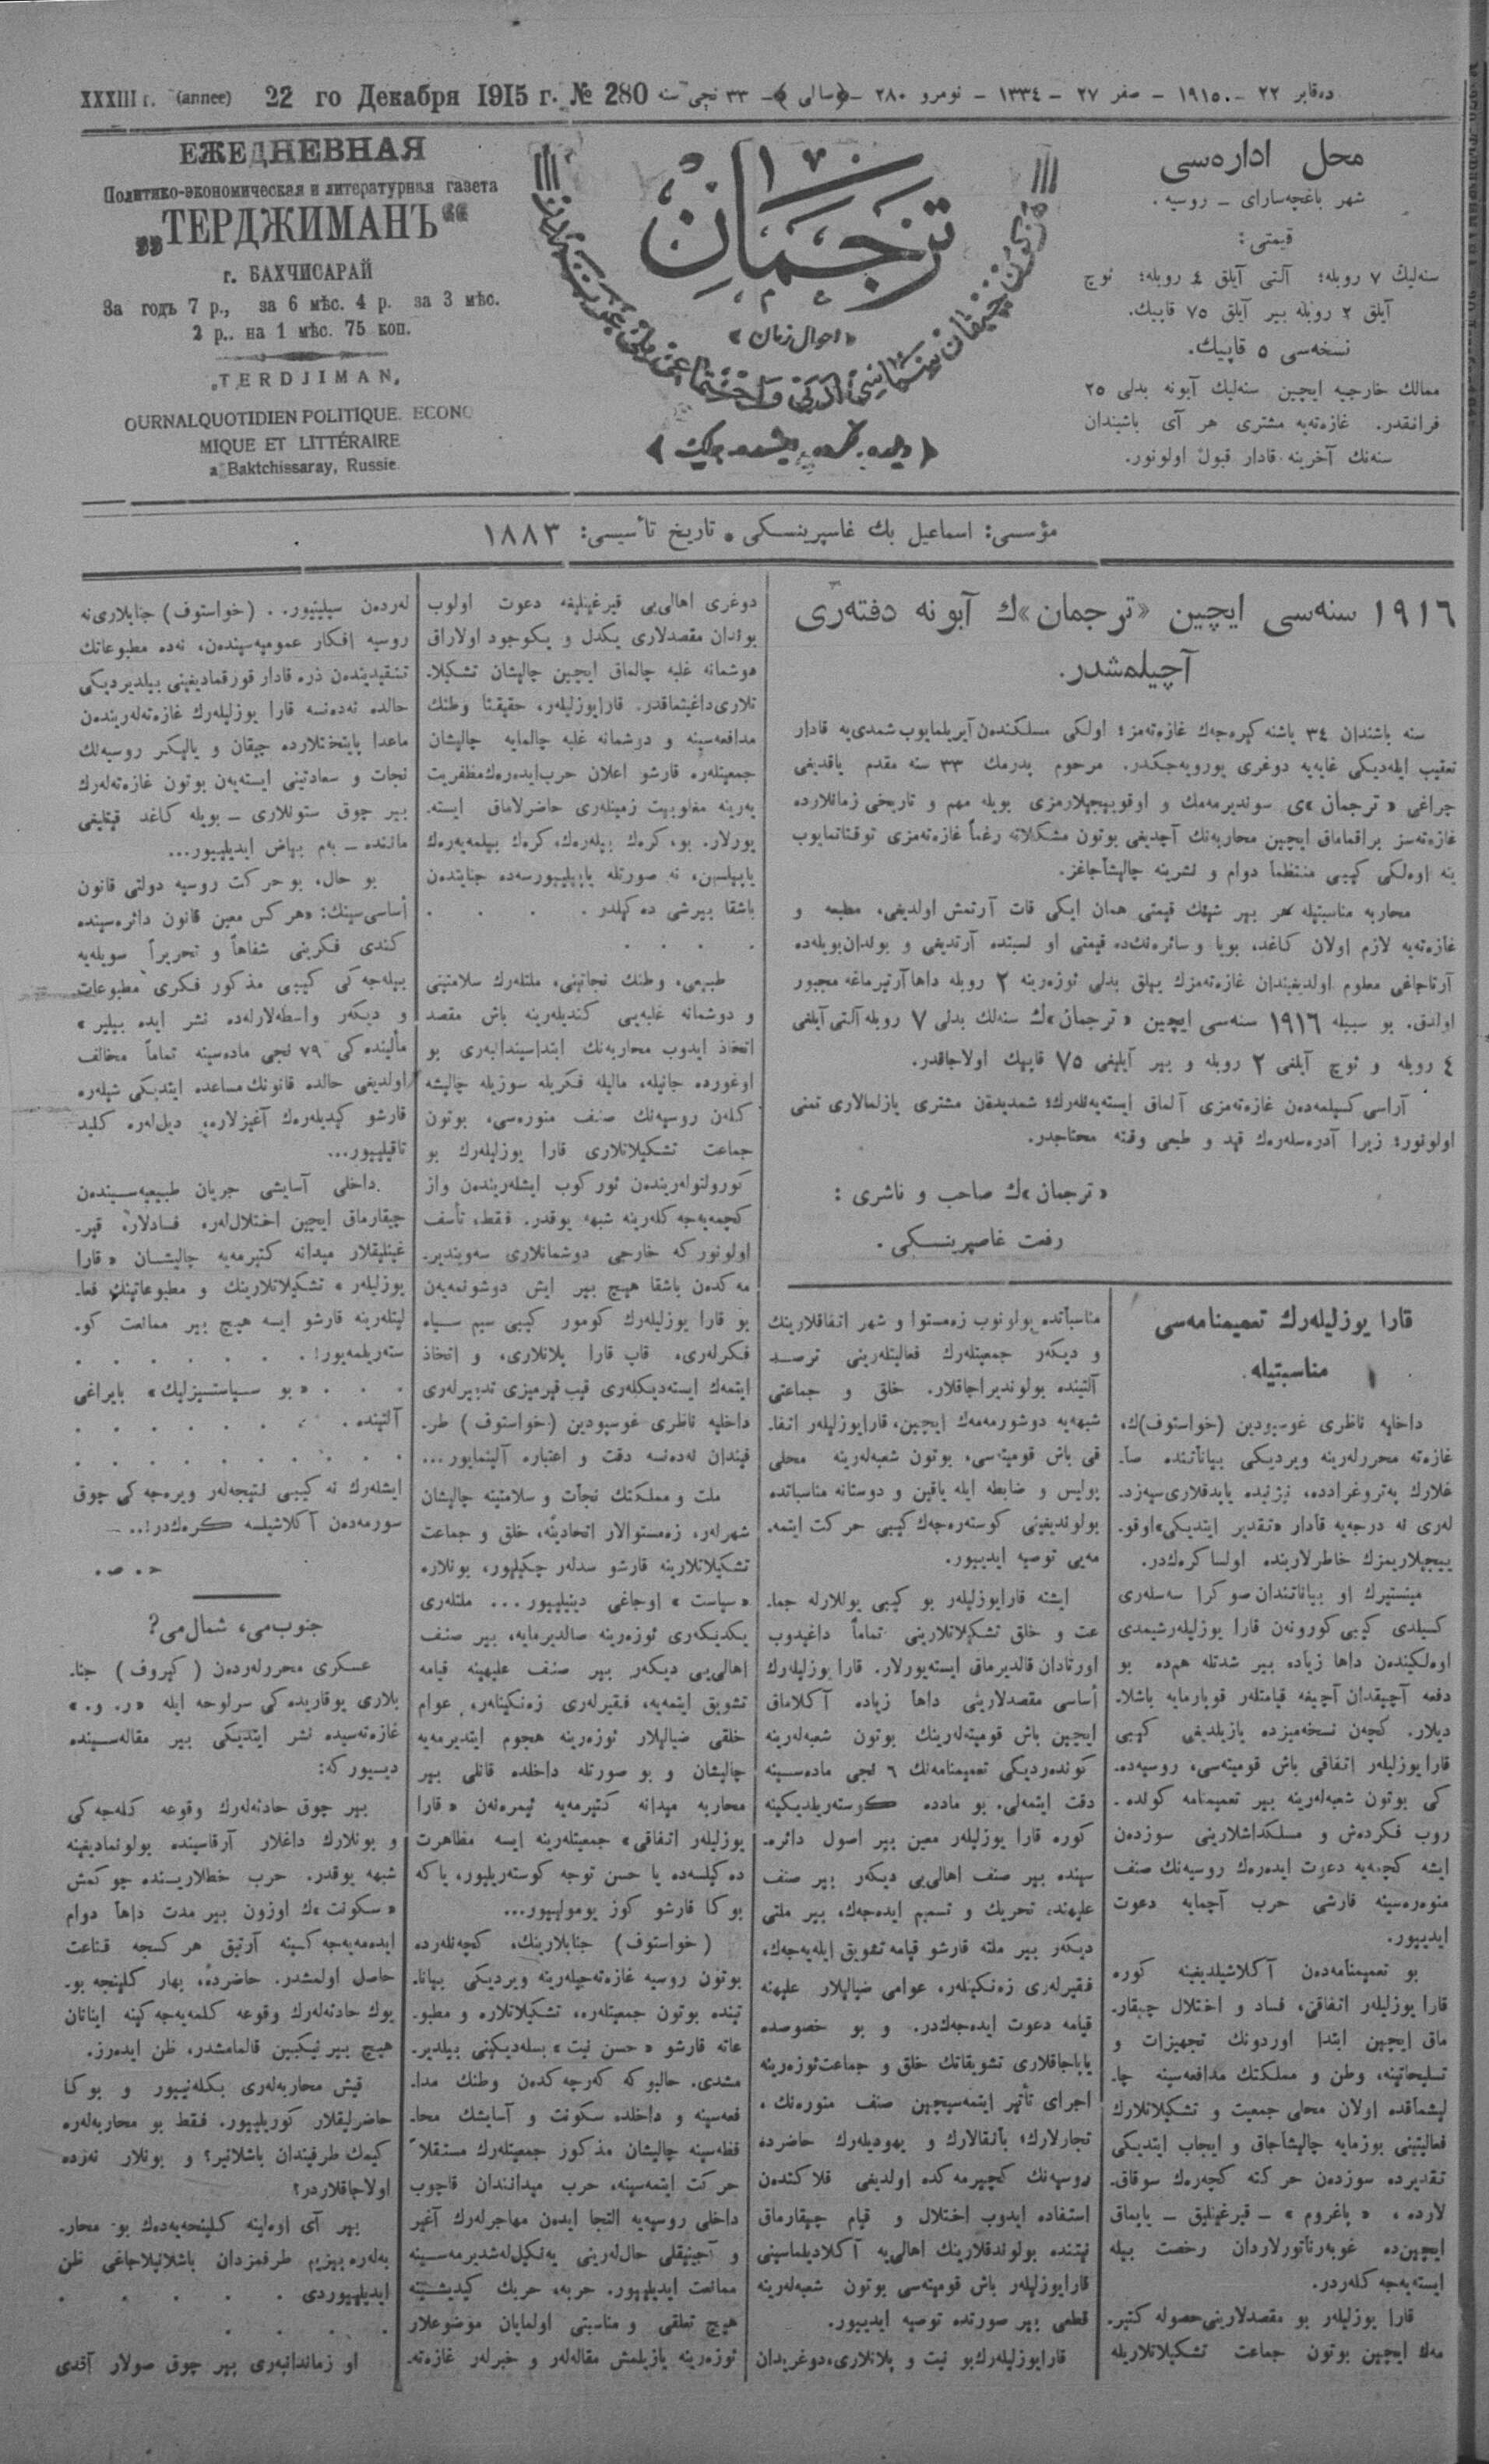 XXXIII г. (annee) 22 го Декабря 1915 г. № 280 دەقابر ٢٢ – ١٩١٥ – صفر ٢٧ – ١٣٣٤ – نومرو ٢٨٠ –﴿سالی﴾– ٣٣ نچی سنه
ЕЖЕДНЕВНАЯ
Политико-экономическая и литературная газета
„ТЕРДЖИМАНЪ“
г. БАХЧИСАРАЙ
За годъ 7 р., за 6 мѣс. 4 р. за 3 мѣс.
2 р.. на 1 мѣс. 75 коп.
„TERDJIMAN„
OURNALQUOTIDIEN POLITIQUE. ECONO
MIQUE ET LITTÉRAIRE
a Baktchissaray, Russie
ترجمان
«احوال زمان»
﴿ دیلده، فكرده، ایشده برلك ﴾
محل ادارەسی
شهر باغچەسارای – روسیه .
قیمتی:
سنەلیك ٧ روبله؛ آلتی آیلق ٤ روبله؛ ئوچ
آیلق ٢ روبله بیر آیلق ٧٥ قاپیك.
نسخەسی ٥ قاپیك.
ممالك خارجیه ایچین سنەلیك آبونه بدلی ٢٥
فرانقدر. غازەتەیه مشتری هر آی باشیندان
سنەنك آخرینه قادار قبول اولونور.
مؤسسی: اسماعیل بك غاسپرینسكی • تاریخ تأسیسی: ١٨٨٣
١٩١٦ سنەسی ایچین «ترجمان»ك آبونه دفتەری
آچیلمشدر.
سنه باشندان ٣٤ یاشنه كیرەجەك غازەتەمز؛ اولكی مسلكندن آیریلمایوب شمدی‌یه قادار
تعقیب ایلەدیكی غایەیه دوغری یورویەجكدر. مرحوم پدرمك ٣٣ سنه مقدم یاقدیغی
چراغی «ترجمان»ی سوندیرمەمك و اوقویجیلارمزی بویله مهم و تاریخی زمانلارده
غازەتەسز براقماماق ایچین محاربەنك آچدیغی بوتون مشكلاته رغماً غازەتەمزی توقتاتمایوب
ینه اوەلكی كیبی منتظماً دوام و نشرینه چالیشاجاغز.
محاربه مناسبتیله هر بیر شیئك قیمتی همان ایكی قات آرتمش اولدیغی، مطبعه و
غازەتەیه لازم اولان كاغد، بویا و سائرەنك‌ده قیمتی او نسبتده آرتدیغی و بوندان‌بویله‌ده
آرتاجاغی معلوم اولدیغیندان غازەتەمزك ییلق بدلی ئوزەرینه ٢ روبله داها آرتیرماغه مجبور
اولدق. بو سببله ١٩١٦ سنەسی ایچین «ترجمان»ك سنەلك بدلی ٧ روبله آلتی آیلغی
٤ روبله و ئوچ آیلغی ٢ روبله و بیر آیلیغی ٧٥ قاپیك اولاجاقدر.
آراسی كسیلمەدن غازەتەمزی آلماق ایستەیەنلەرك؛ شمدیدن مشتری یازلمالاری تمنی
اولونور؛ زیرا آدرەسلەرك قید و طبعی وقته محتاجدر.
«ترجمان»ك صاحب و ناشری :
رفعت غاصپرینسكی .
قارا یوزلیلەرك تعمیمنامەسی
مناسبتیله.
داخلیه ناظری غوسپودین (خواستوف)ك،
غازەته محررلەرینه ویردیكی بیاناتنده صا-
غلارك پەتروغرادده، نیژنیده یاپدقلاری سیەزد-
لەری نه درجەیه قادار «تقدیر ایتدیكی»اوقو-
ییجیلاریمزك خاطرلارینده اولسا كرەك‌در.
مینستیرك او بیاناتندان صوكرا سەسلەری
كسیلدی كیبی كورونەن قارا یوزلیلەرشیمدی
اوەلكیندەن داها زیاده بیر شدتله هم‌ده بو
دفعه آچیقدان آچیغه قیامتلەر قوپارمایه باشلا-
دیلار. كچەن نسخەمیزده یازیلدیغی كیبی
قارا یوزلیلەر اتفاقی باش قومیتەسی، روسیەده-
كی بوتون شعبەلەرینه بیر تعمیمنامه كوندە-
روب فكردەش و مسلكداشلارینی سوزدەن
ایشه كچمەیه دعوت ایدەرەك روسیەنك صنف
منورەسینه قارشی حرب آچمایه دعوت
ایدییور.
بو تعمیمنامەدەن آكلاشیلدیغینه كوره
قارا یوزلیلەر اتفاقی، فساد و اختلال چیقار-
ماق ایچین ابتدا اوردونك تجهیزات و
تسلیحاتینه، وطن و مملكتك مدافعەسینه چا-
لیشماقده اولان محلی جمعیت و تشكیلاتلارك
فعالیتینی بوزمایه چالیشاجاق و ایجاب ایتدیكی
تقدیرده سوزدەن حركته كچەرەك سوقاق-
لارده، «پاغروم» – قیرغینلیق – یاپماق
ایچین‌ده غوبەرناتورلاردان رخصت بیله
ایستەیەجەكلەردر.
قارا یوزلیلەر بو مقصدلارینی حصوله كتیر-
مەك ایچین بوتون جماعت تشكیلاتلاریله
مناسباتده بولونوب زەمستوا و شهر اتفاقلارینك
و دیكەر جمعیتلەرك فعالیتلەرینی ترصد
آلتینده بولوندیراجاقلار. خلق و جماعتی
شبهەیه دوشورمەمەك ایچین، قارایوزلیلەر اتفا-
قی باش قومیتەسی، بوتون شعبەلەرینه محلی
پولیس و ضابطه ایله یاقین و دوستانه مناسباتده
بولوندیغینی كوستەرەجەك كیبی حركت ایتمە-
مەیی توصیه ایدییور.
ایشته قارایوزلیلەر بو كیبی یوللارله جما-
عت و خلق تشكیلاتلارینی تماماً داغیدوب
اورتادان قالدیرماق ایستەیورلار. قارا یوزلیلەرك
أساسی مقصدلارینی داها زیاده آكلاماق
ایچین باش قومیتەلەرینك بوتون شعبەلەرینه
كوندەردیكی تعمیمنامەنك ٦ نجی مادەسینه
دقت ایتمەلی. بو مادده كوستەریلدیكینه
كوره قارا یوزلیلەر معین بیر اصول دائرە-
سینده بیر صنف اهالی‌یی دیكەر بیر صنف
علیهنه تحریك و تسمیم ایدەجەك، بیر ملتی
دیكەر بیر ملته قارشو قیامه تشویق ایلەیەجەك،
فقیرلەری زەنكینلەر، عوامی ضیالیلار علیهنه
قیامه دعوت ایدەجەكدر. و بو خصوصده
یاپاجاقلاری تشویقاتك خلق و جماعت‌ئوزەرینه
اجرای تأثیر ایتمەسیچین صنف منورەنك،
تجارلارك؛ بانقالارك و یهودیلەرك حاضرده
روسیەنك كچیرمەكده اولدیغی فلاكتدەن
استفاده ایدوب اختلال و قیام چیقارماق
نیتنده بولوندقلارینك اهالی‌یه آكلادیلماسینی
قارایوزلیلەر باش قومیتەسی بوتون شعبەلەرینه
قطعی بیر صورتده توصیه ایدییور.
قارایوزلیلەرك‌بو نیت و پلانلاری،دوغریدان
دوغری اهالی‌یی قیرغینلیغه دعوت اولوب
بوندان مقصدلاری یكدل و یكوجود اولاراق
دوشمانه غلبه چالماق ایچین چالیشان تشكیلا-
تلاری‌داغیتماقدر. قارایوزلیلەر، حقیقتاً وطنك
مدافعەسینه و دوشمانه غلبه چالمایه چالیشان
جمعیتلەره قارشو اعلان حرب‌ایدەرەك‌مظفریت
یەرینه مغلوبیت زمینلەری حاضرلاماق ایستە-
یورلار. بو، كرەك بیلەرەك، كرەك بیلمەیەرەك
یاپیلسین، نه صورتله یاپیلییورسەده جنایتدەن
باشقا بیرشی ده‌كیلدر . . . . .
. . . .
طبیعی، وطنك نجاتینی، ملتلەرك سلامتینی
و دوشمانه غلبەیی كندیلەرینه باش مقصد
اتخاذ ایدوب محاربەنك ابتداسیندانبەری بو
اوغورده جانیله، مالیله فكریله سوزیله چالیشه
كلەن روسیەنك صنف منورەسی، بوتون
جماعت تشكیلاتلاری قارا یوزلیلەرك بو
كورولتولەریندەن ئوركوب ایشلەریندەن واز
كچمەیەجەكلەرینه شبهه یوقدر. فقط، تأسف
اولونوركه خارجی دوشمانلاری سەویندیر-
مەكدەن باشقا هیچ بیر ایش دوشونمەیەن
بو قارا یوزلیلەرك كومور كیبی سیم سیاه
فكرلەری، قاپ قارا پلانلاری، و اتخاذ
ایتمەك ایستەدیكلەری قیپ قیرمیزی تدبیرلەری
داخلیه ناظری غوسپودین (خواستوف) طر-
فیندان نەدەنسه دقت و اعتباره آلینمایور...
ملت و مملكتك نجات و سلامتینه چالیشان
شهرلەر، زەمستوالار اتحادینه، خلق و جماعت
تشكیلاتلارینه قارشو سدلەر چكیلیور، بونلاره
«سیاست» اوجاغی دینیلییور... ملتلەری
یكدیكەری ئوزەرینه صالدیرمایه، بیر صنف
اهالی‌یی دیكەر بیر صنف علیهینه قیامه
تشویق ایتمەیه، فقیرلەری زەنكینلەر، عوام
خلقی ضیالیلار ئوزەرینه هجوم ایتدیرمەیه
چالیشان و بو صورتله داخلده قانلی بیر
محاربه میدانه كتیرمەیه تیتره‌نەن «قارا
یوزلیلەر اتفاقی» جمعیتلەرینه ایسه مظاهرت
ده‌كیلسەده یا حسن توجه كوستەریلیور، یاكه
بوكا قارشو كوز یومولییور...
(خواستوف) جنابلارینك، كچەنلەرده
بوتون روسیه غازەتەجیلەرینه ویردیكی بیانا-
تینده بوتون جمعیتلەره، تشكیلاتلاره و مطبو-
عاته قارشو «حسن نیت» بسلەدیكینی بیلدیر-
مشدی. حالبوكه كەرچەكدەن وطنك مدا-
فعەسینه و داخلده سكونت و آسایشك محا-
فظەسینه چالیشان مذكور جمعیتلەرك مستقلاً
حركت ایتمەسینه، حرب میدانندان قاچوب
داخلی روسیەیه التجا ایدەن مهاجرلەرك آغیر
و آجینیقلی حال‌لەرینی یەنكیل‌لەشدیرمەسینه
ممانعت ایدیلییور. حربه، حربك كیدیشینه
هیچ تعلقی و مناسبتی اولمایان موضوعلار
ئوزەرینه یازیلمش مقالەلەر و خبرلەر غازەته-
لەردەن سیلینیور.. (خواستوف) جنابلاری‌نه
روسیه افكار عمومیەسیندەن، نەده مطبوعاتك
تنقیدیندەن ذره قادار قورقمادیغینی بیلدیردیكی
حالده نەدەنسه قارا یوزلیلەرك غازەتەلەریندەن
ماعدا پایتختلارده چیقان و یالیكز روسیەنك
نجات و سعادتینی ایستەیەن بوتون غازەتەلەرك
بیر چوق ستونلاری – بویله كاغد قیتلیغی
ماننده – بەم بیاض ایدیلییور...
بو حال، بو حركت روسیه دولتی قانون
أساسی‌سینك: «هركس معین قانون دائرەسینده
كندی فكرینی شفاهاً و تحریراً سویلەیه
بیلەجەكی كیبی مذكور فكری مطبوعات
و دیكەر واسطەلارله‌ده نشر ایده بیلیر»
مألینده‌كی ٧٩ نجی مادەسینه تماماً مخالف
اولدیغی حالده قانونك مساعده ایتدیكی شیلەره
قارشو كیدیلەرەك آغیزلاره، دیل‌لەره كلید
تاقیلییور...
داخلی آسایشی جریان طبیعیەسیندەن
چیقارماق ایچین اختلال‌لەره فسادلاره، قیر-
غینلیقلار میدانه كتیرمەیه چالیشان «قارا
یوزلیلەر» تشكیلاتلارینك و مطبوعاتینك فعا-
لیتلەرینه قارشو ایسه هیچ بیر ممانعت كو-
ستەریلمەیور!. . . . . . .
. . . «بو سیاستسیزلیك» بایراغی
آلتینده. . . . . . . .
ایشلەرك نه كیبی نتیجەلەر ویرەجەكی چوق
سورمەدەن آكلاشیلسه كرەك‌در!.. –
ح. ص.
جنوب‌می، شمال‌می؟
عسكری محررلەردەن (كیروف) جنا-
بلاری یوقاریده‌كی سرلوحه ایله «ر. و.»
غازەتەسیده نشر ایتدیكی بیر مقالەسینده
دیییوركه:
بیر چوق حادثەلەرك وقوعه كلەجەكی
و بونلارك داغلار آرقاسینده بولونمادیغینه
شبهه یوقدر. حرب خطلارینده چوكمش
«سكونت»ك اوزون بیر مدت داها دوام
ایدەمەیەجەكینه آرتیق هركسجه قناعت
حاصل اولمشدر. حاضرده، بهار كلینجه بو-
یوك حادثەلەرك وقوعه كلمەیەجەكینه اینانان
هیچ بیر نیكبین قالمامشدر، ظن ایدەرز.
قیش محاربەلەری بكلەنییور و بوكا
حاضرلیقلار كوریلییور. فقط بو محاربەلەره
كیمك طرفیندان باشلانیر؟ و بونلار نەرده
اولاجاقلاردر؟
بیر آی اوەلینه كلینجەیەدەك بو محار-
بەلەره‌بیزیم طرفمزدان باشلانیلاجاغی ظن
ایدیلییوردی. . . . . .
. . . . . .
او زماندانبەری بیر چوق صولار آقدی